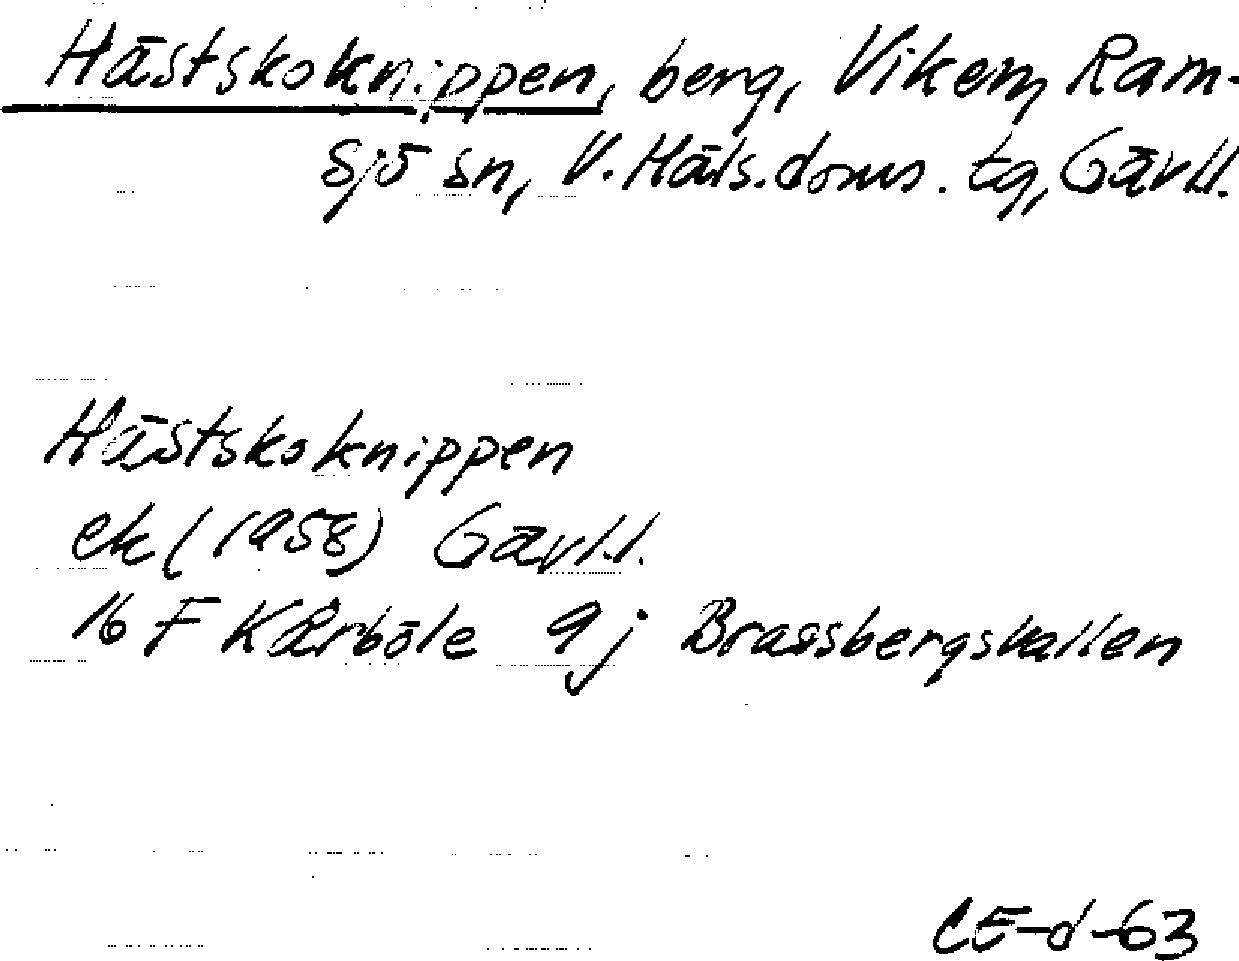 Hästskoknippen, berg, Viken, Ram-
sjö sn, V. Häls. doms. tg, Gävl.l.
Hästskoknippen
ek (1958) Gävl.l.
16 F Kårböle 9 j Brassbergskallen
CE-d-63